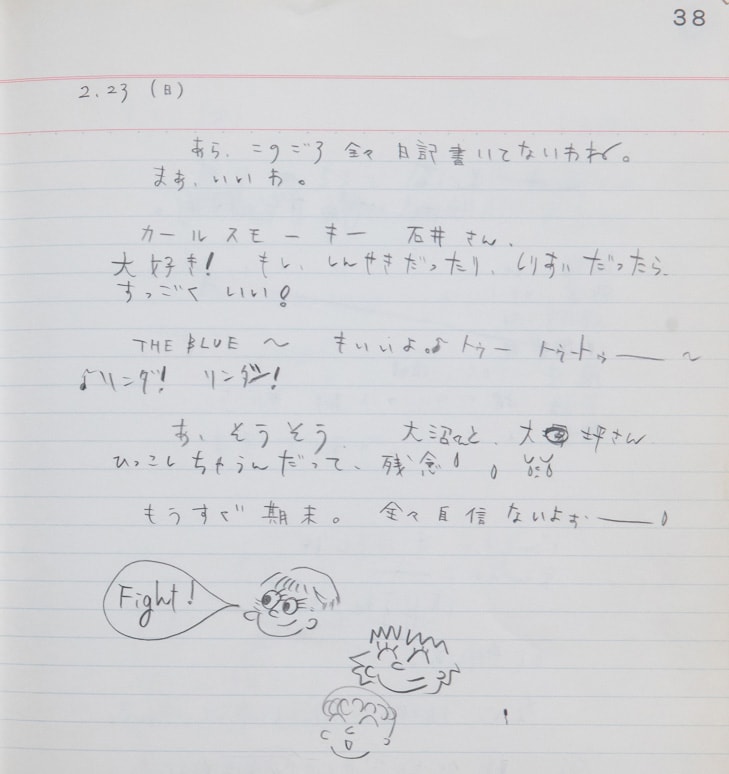 38
2.23 (日)
あら、このごろ 全々 日記書いてないわね。
まぁ、いいわ。
カールスモーキー 石井さん、
大好き! もし、しんせきだったり、しりあいだったら、
すっごく いい!
THE BLUE 〜 もいいよ。♪トゥー トゥートゥー── 〜
♪リンダ! リンダー!
あ、そうそう、 大沼さんと、大坪さん
ひっこしちゃうんだって、残念!
もうすぐ期末。 全々自信ないよぉ──!
Fight!